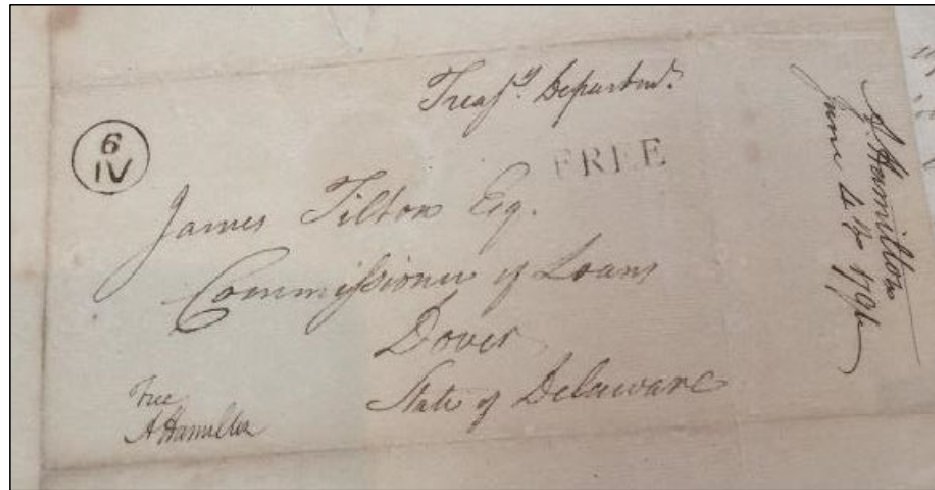 Treasy. Departmt.
6
IV
FREE
James Tilton Esq.
Commissioner of Loans
Dover
State of Delaware
Free
A Hamilton
A. Hamilton
June 4th